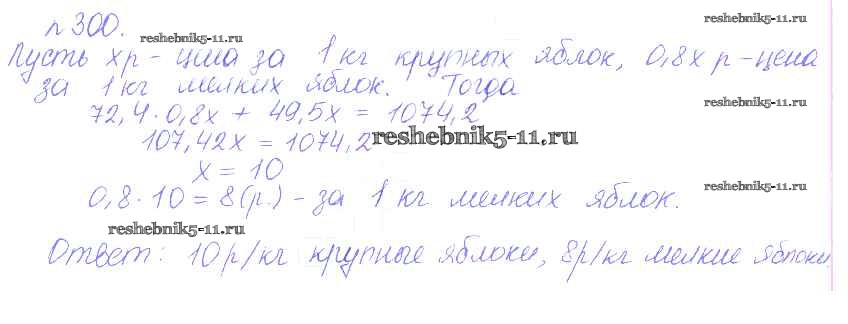 n 300.
reshebnik5-11.ru
reshebnik5-11.ru
Пусть хр - цена за 1 кг крупных яблок, 0,8х р - цена
за 1 кг мелких яблок. Тогда
72,4 · 0,8х + 49,5х = 1074,2
reshebnik5-11.ru
107,42х = 1074,2
reshebnik5-11.ru
х = 10
0,8 · 10 = 8(р.) - за 1 кг мелких яблок.
reshebnik5-11.ru
reshebnik5-11.ru
Ответ: 10р/кг крупные яблоки, 8р/кг мелкие яблоки.